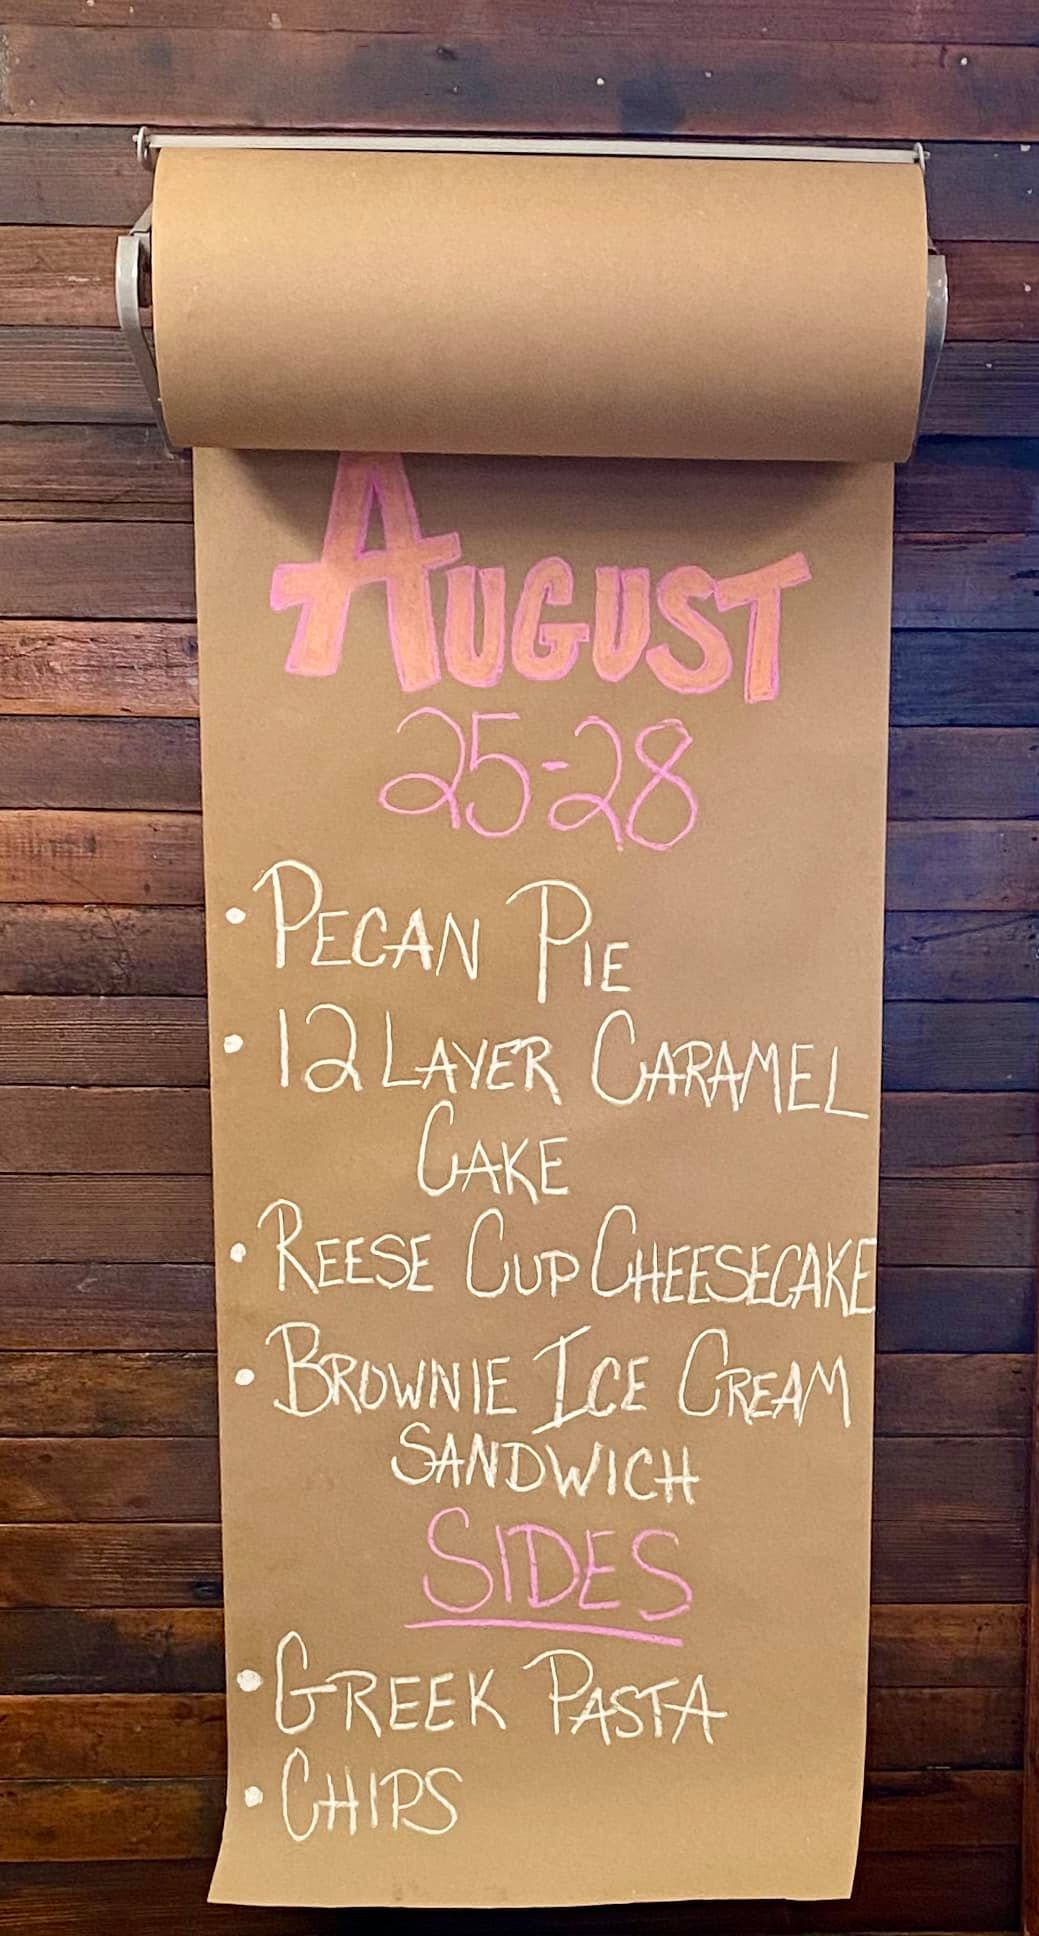 AUGUST
25-28
• PECAN PIE
• 12 LAYER CARAMEL
CAKE
• REESE CUP CHEESECAKE
• BROWNIE ICE CREAM
SANDWICH
SIDES
• GREEK PASTA
• CHIPS